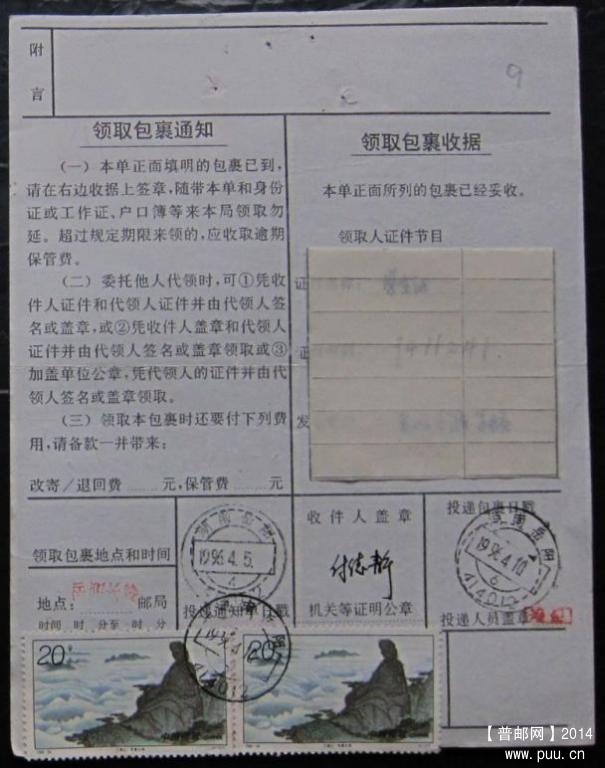 附言
9
领取包裹通知
(一) 本单正面填明的包裹已到,
请在右边收据上签章,随带本单和身份
证或工作证、户口簿等来本局领取勿
延。超过规定期限来领的,应收取逾期
保管费。
(二) 委托他人代领时,可①凭收
件人证件和代领人证件并由代领人签
名或盖章,或②凭收件人盖章和代领人
证件并由代领人签名或盖章领取或③
加盖单位公章,凭代领人的证件并由代
领人签名或盖章领取。
(三) 领取本包裹时还要付下列费
用,请备款一并带来:
改寄/退回费......元,保管费...元
领取包裹收据
本单正面所列的包裹已经妥收。
领取人证件节目
证
证
发
领取包裹地点和时间
地点: 邮局
时间 时 分至 时 分
1996.4.5.
4
投递通知单日戳
收件人盖章
机关等证明公章
投递包裹日戳
湖南岳阳
1996.4.10
6
414012
投递人员盖章
414012
20分
20分
【普邮网】2014
www.puu.cn